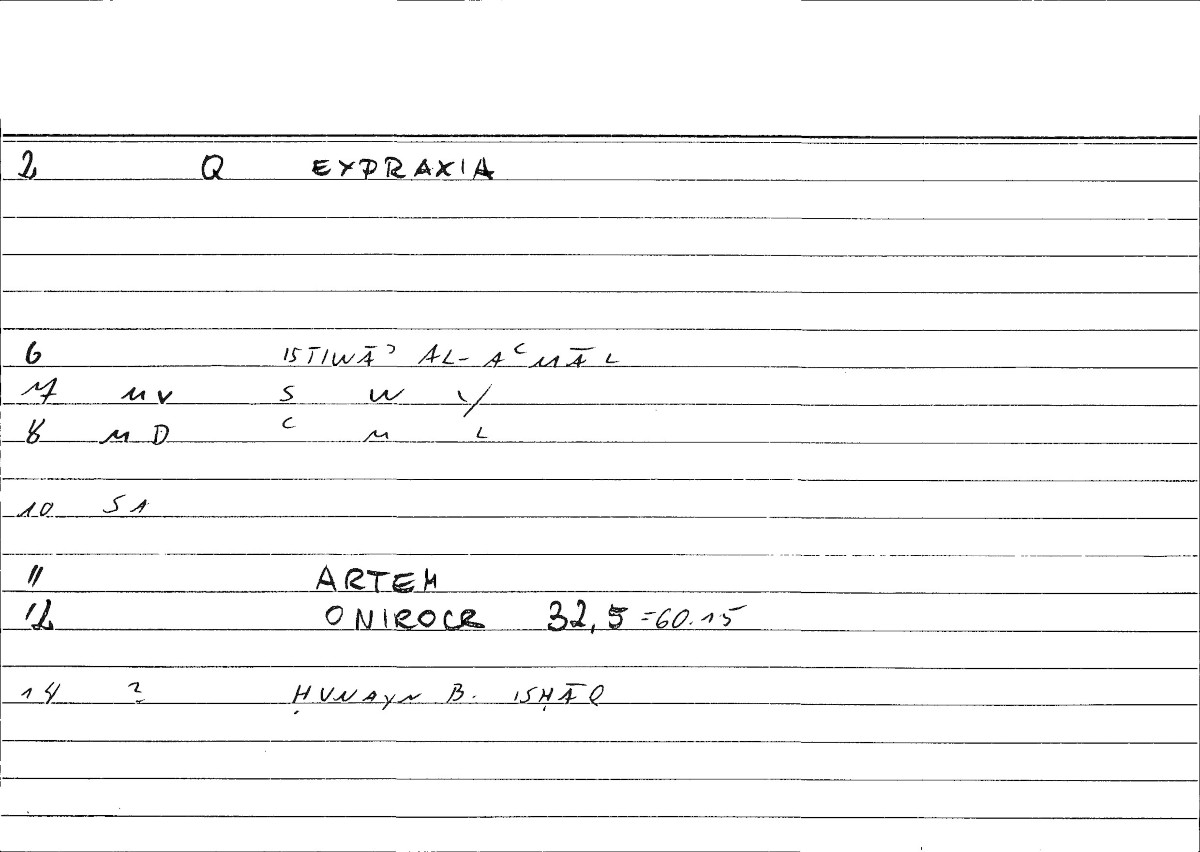 2 Q EYPRAXIA
6 ISTIWĀʾ AL-AʿMĀL
7 MV S W Y
8 MD ʿ M L
10 SA
11 ARTEM
12 ONIROCR 32,5 =60.15
14 ? ḤUNAYN B. ISḤĀQ